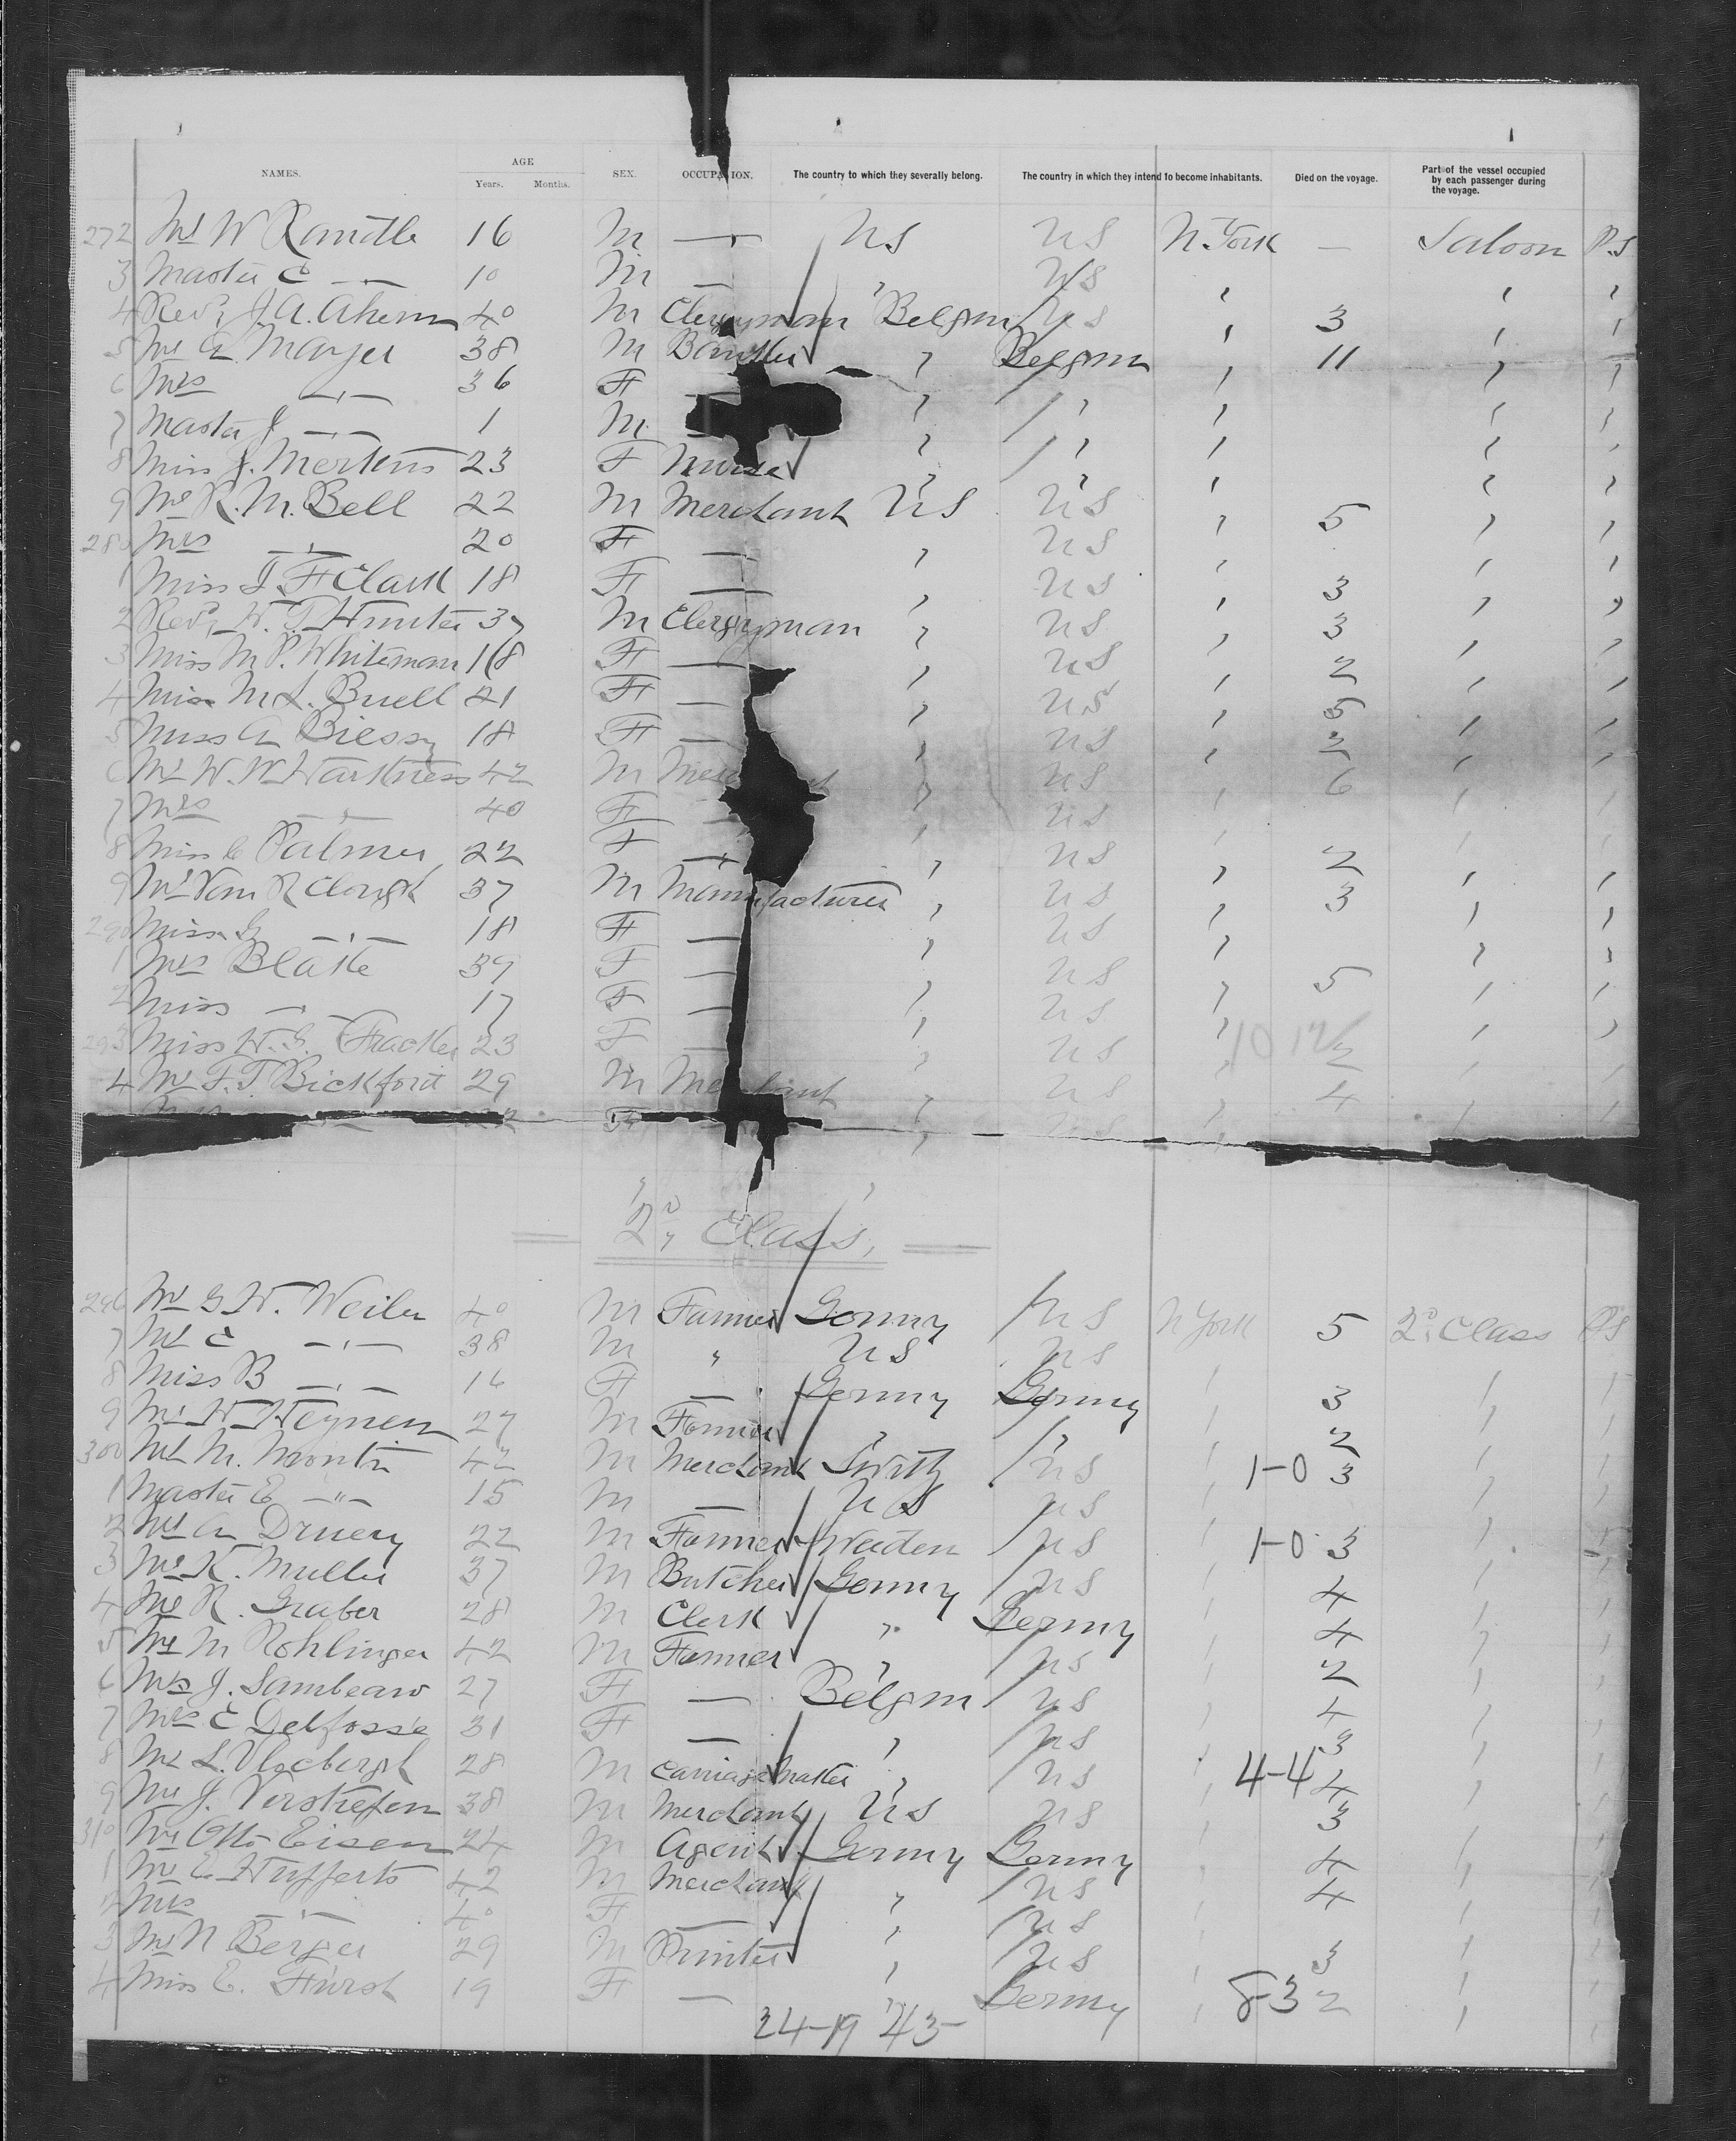 NAMES. AGE Years. Months. SEX. OCCUPATION. The country to which they severally belong. The country in which they intend to become inhabitants. Died on the voyage. Part of the vessel occupied by each passenger during the voyage.
272 Mr W Randle 16 M — US US N. York — Saloon P.S
3 Master C —"— 10 M — " US " " "
4 Revd J. A. Ahern 40 M Clergyman Belgm US " 3 " "
5 Mr A Mayer 38 M Banker " Belgm " 11 " "
6 Mrs —"— 36 F " " " " "
7 Master J —"— 1 M " " " " "
8 Miss J. Mertens 23 F Nurse " " " " "
9 Mr R. M. Bell 22 M Merchant US US " 5 " "
280 Mrs —"— 20 F — " US " " "
1 Miss I F Clark 18 F — " US " 3 " "
2 Revd W. T. Hunter 37 M Clergyman " US " 3 " "
3 Miss M P. Whiteman 18 F — " US " 2 " "
4 Miss M L. Buell 21 F — " US " 5 " "
5 Miss A 18 F — " US " 2 " "
6 Mr W. W Harkness 42 M " US " 6 " "
7 Mrs —"— 40 F — " US " " "
8 Miss C Palmer 22 F — " US " 2 " "
9 Mr Van R Clough 37 M Manufacturer " US " 3 " "
290 Miss G —"— 18 F — " US " " "
1 Mrs Blake 39 F — " US " 5 " "
2 Miss —"— 17 F — " US " " "
293 Miss W. G. 23 F — " US " 2 " "
4 Mr F. T Bickford 29 M Merchant " US " 4 " "
F " US " " "
2d Class,
296 Mr G W. Weiler 40 M Farmer Germy US N York 5 2d Class P.S
7 Mr C —"— 38 M " US US " " "
8 Miss B —"— 16 F — Germy Germy " 3 " "
9 Mr H Heynen 27 M Farmer " " " 2 " "
300 Mr M. Montri 42 M Merchant Switz US " 1-0 3 " "
1 Master E —"— 15 M — US US " " "
2 Mr A Druery 22 M US " 1-0 3 " "
3 Mr K. Muller 37 M Butcher Germy US " 4 " "
4 Mr R. Graber 28 M Clerk " Germy " 4 " "
5 Mr M Rohlinger 42 M Farmer " US " 2 " "
6 Mrs J. Lambeaw 27 F — Belgm US " 4 " "
7 Mrs C Delfosse 31 F — " US " 3 " "
8 Mr L. Vlocbergh 28 M Carriage Maker " US " 4-4 4 " "
9 Mr J. Verstrepen 38 M Merchant US US " 3 " "
310 Mr Otto Eisen 24 M Agent Germy Germy " 4 " "
1 Mr E Hufferts 42 M Merchant " US " 4 " "
2 Mrs —"— 40 F — " US " " "
3 Mr N Berger 29 M Printer " US " 3 " "
4 Miss E. Hurst 19 F — " Germy " 8-3 2 " "
24-19 43-